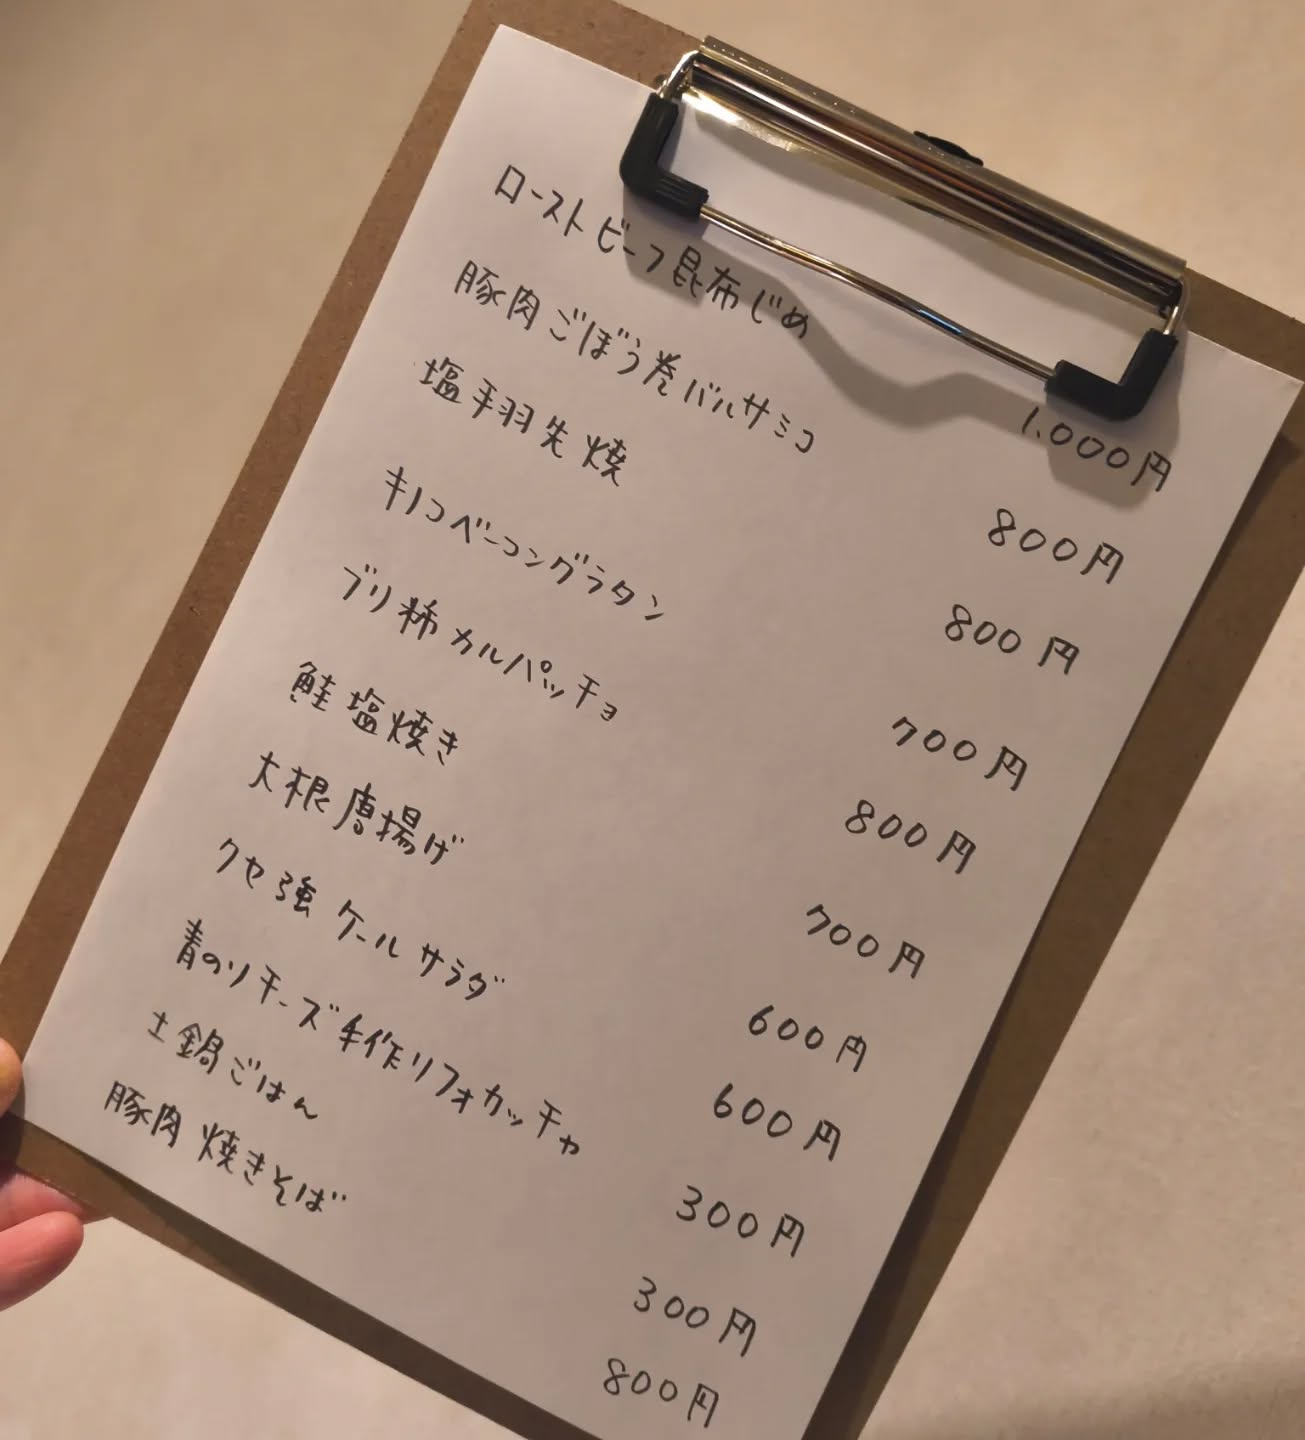 ローストビーフ昆布じめ 1.000円
豚肉ごぼう巻バルサミコ 800円
塩手羽先焼 800円
キノコベーコングラタン 700円
ブリ柿カルパッチョ 800円
鮭塩焼き 700円
大根唐揚げ 600円
クセ強ケールサラダ 600円
青のりチーズ手作りフォカッチャ 300円
土鍋ごはん 300円
豚肉焼きそば 800円